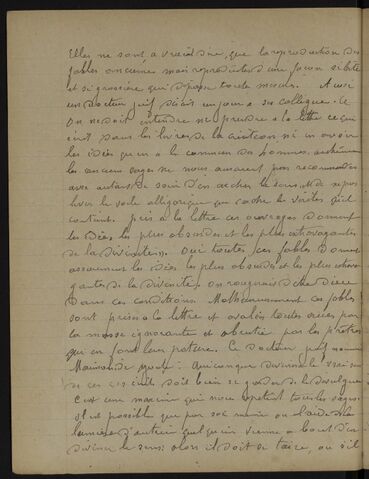 Elles ne sont à vrai dire, que la reproduction des
fables anciennes mais reproduites d'une façon si bête
et si grossière qui dépasse toute mesure. Aussi
un docteur juif disait un jour a ses collègues. Ce
On ne doit entendre ne prendre a la lettre ce qui
écrit dans les livres de la création ni en avoir
les idées qu'en a le commun des hommes, autrement
les anciens sages ne nous auraient pas recommandés
avec autant de soin d'en cacher le sens et de ne pas
lever le voile allégorique qui cache les vérités qu'il
contient. pris a la lettre ces ouvrages donnent
les idées les plus absurdes et les plus extravagantes
de la divinité. Oui toutes ces fables donnent
assurément les idées les plus absurdes et les plus extrava
gantes de la divinité. On rougirait d'être Dieu
dans ces conditions. Malheureusement ces fables
sont prises a la lettre et avalées toutes crues par
la masse ignorante et abrutie par les prêtres
qui en font leur pature. Ce docteur juif nommé
Maimonide ajoute: Quiconque devinera le vrai sens
de ces doit bien se garder de le divulguer
C'est une maxime qui nous repetent tous les sages
Il est possible que par soi même ou l'aide de la
lumière d'autrui quelqu'un vienne a bout d'en
deviner le sens: alors il doit se taire, ou s'il